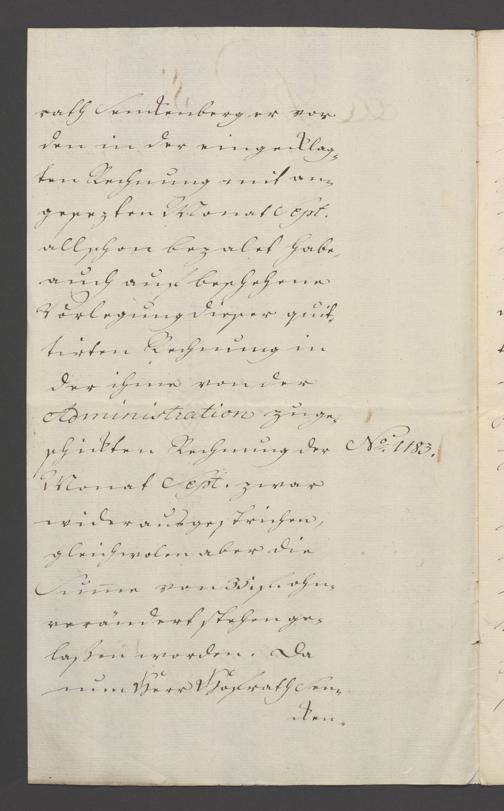 rath Senckenberg er vor
den in der eingeklag-
ten Rechnung mit an-
gesezten Monat Sept.
allschon bezalet habe,
auch auf beschehene
Vorlegung dieser quit-
tirten Rechnung in
der ihme von der
Administration zuge-
schickten Rechnung der No. 1183.
Monat Sept. zwar
wider ausgestrichen,
gleichwolen aber die
Summe von 33 f. ohn-
verändert stehen ge-
lassen worden. Da
nun Herr Hofrath Sen-
cken-